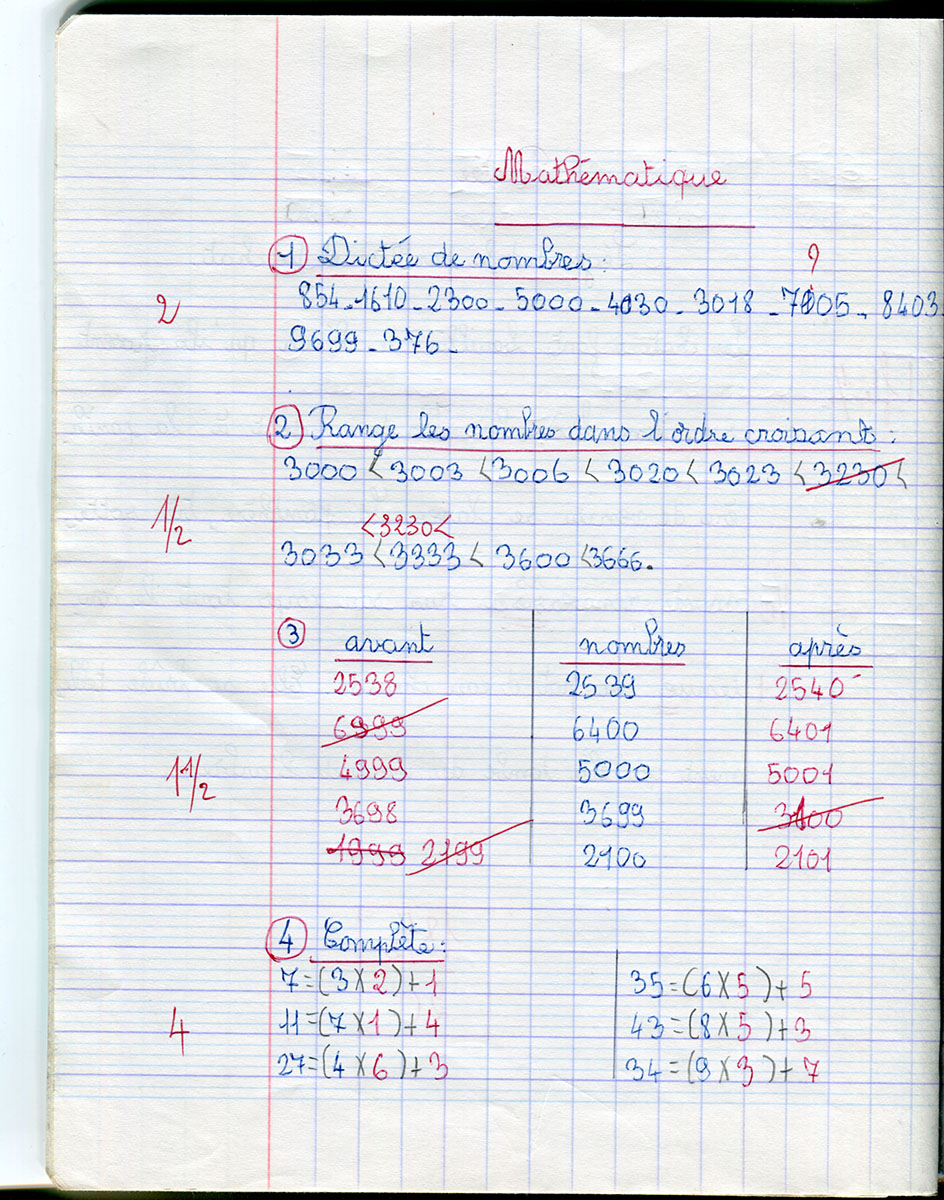 Mathématique
1 Dictée de nombres :
?
2
854 - 1610 - 2300 - 5000 - 4030 - 3018 - 7005 - 8403
9699 - 376 -
2 Range les nombres dans l'ordre croissant :
3000 < 3003 < 3006 < 3020 < 3023 < 3230 <
1/2
< 3230 <
3033 < 3333 < 3600 < 3666.
3 avant nombres après
2538 2539 2540
6999 6400 6401
1 1/2
4999 5000 5001
3698 3699 3100
1999 2199 2100 2101
4 Complète :
7 = (3 X 2) + 1 35 = (6 X 5) + 5
4
11 = (7 X 1) + 4 43 = (8 X 5) + 3
27 = (4 X 6) + 3 34 = (9 X 3) + 7